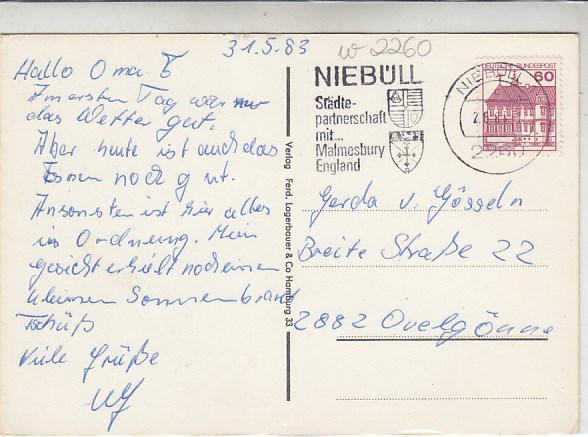 31.5.83
w 2260
Hallo Oma
Am ersten Tag war nur
das Wetter gut.
Aber heute ist auch das
Essen noch gut.
Ansonsten ist hier alles
in Ordnung. Mein
gesicht erhielt noch einen
kleinen Sonnenbrand
Tschüß
Viele Grüße
Verlag Ferd. Lagerbauer & Co Hamburg 33
NIEBÜLL
Städte-
partnerschaft
mit...
Malmesbury
England
NIEBÜLL
2260
DEUTSCHE BUNDESPOST
60
Gerda v. Gösseln
Breite Straße 22
2882 Ovelgönne